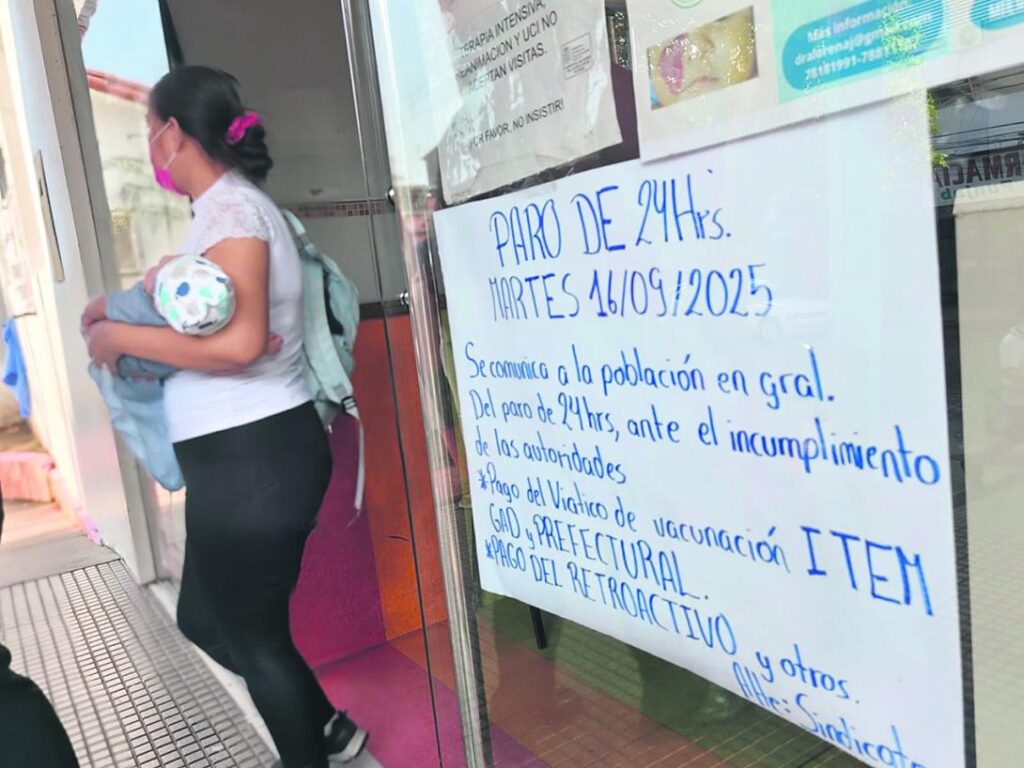 TERAPIA INTENSIVA,
REANIMACION Y UCI NO
ACEPTAN VISITAS.
POR FAVOR, NO INSISTIR!
Más información:
dralorenaj@gmail.com
PARO DE 24Hrs.
MARTES 16/09/2025
Se comunica a la población en gral.
Del paro de 24hrs, ante el incumplimiento
de las autoridades
*Pago del Viatico de vacunación ITEM
GAD y PREFECTURAL.
*PAGO DEL RETROACTIVO y otros.
Atte: Sindicato